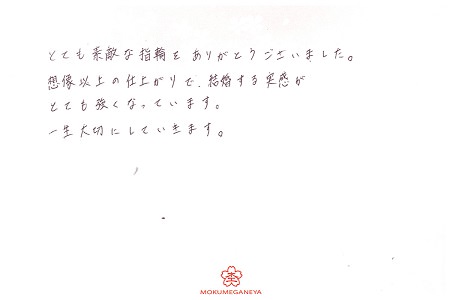 とても素敵な指輪をありがとうございました。
想像以上の仕上がりで、結婚する実感が
とても強くなっています。
一生大切にしていきます。
MOKUMEGANEYA